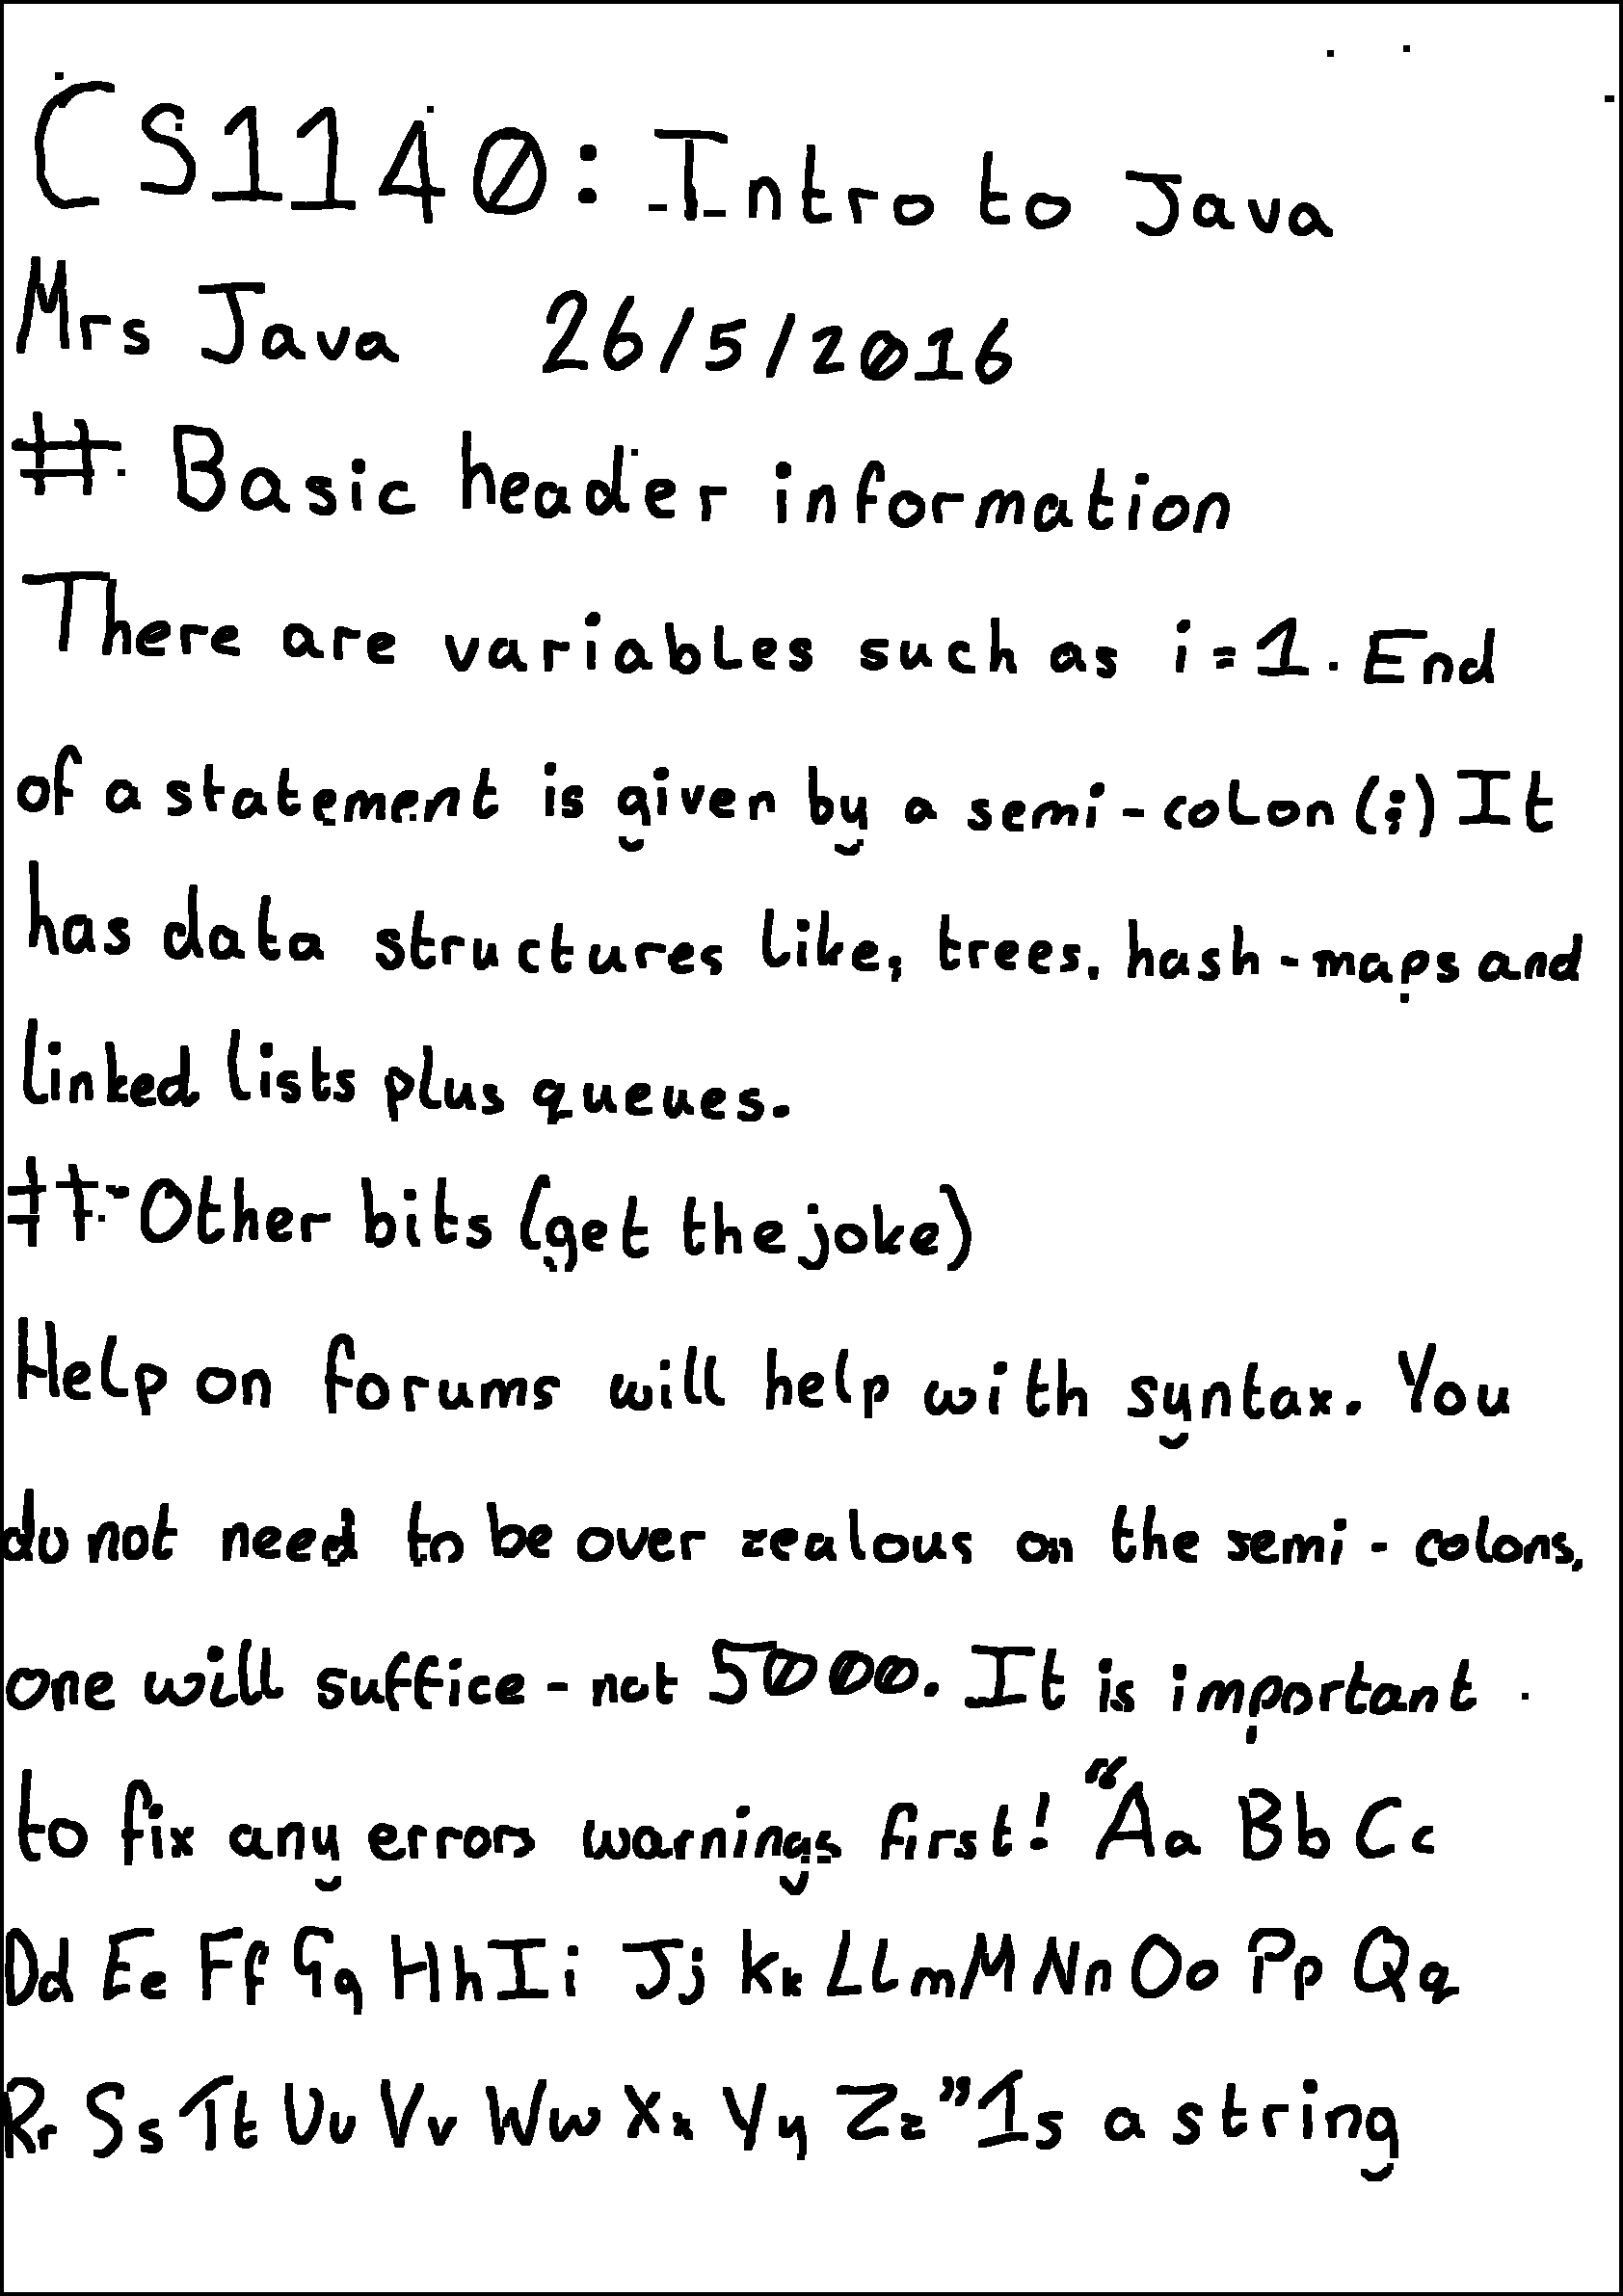 CS1140: Intro to Java
Mrs Java 26/5/2016
# Basic header information
There are variables such as i=1. End
of a statement is given by a semi-colon(;) It
has data structures like, trees, hash-maps and
linked lists plus queues.
# Other bits (get the joke)
Help on forums will help with syntax. You
do not need to be over zealous on the semi-colons,
one will suffice - not 5000. It is important
to fix any errors warnings first! "Aa Bb Cc
Dd Ee Ff Gg Hh Ii Jj Kk Ll mM Nn Oo Pp Qq
Rr Ss Tt Uu Vv Ww Xx Yy Zz" Is a string